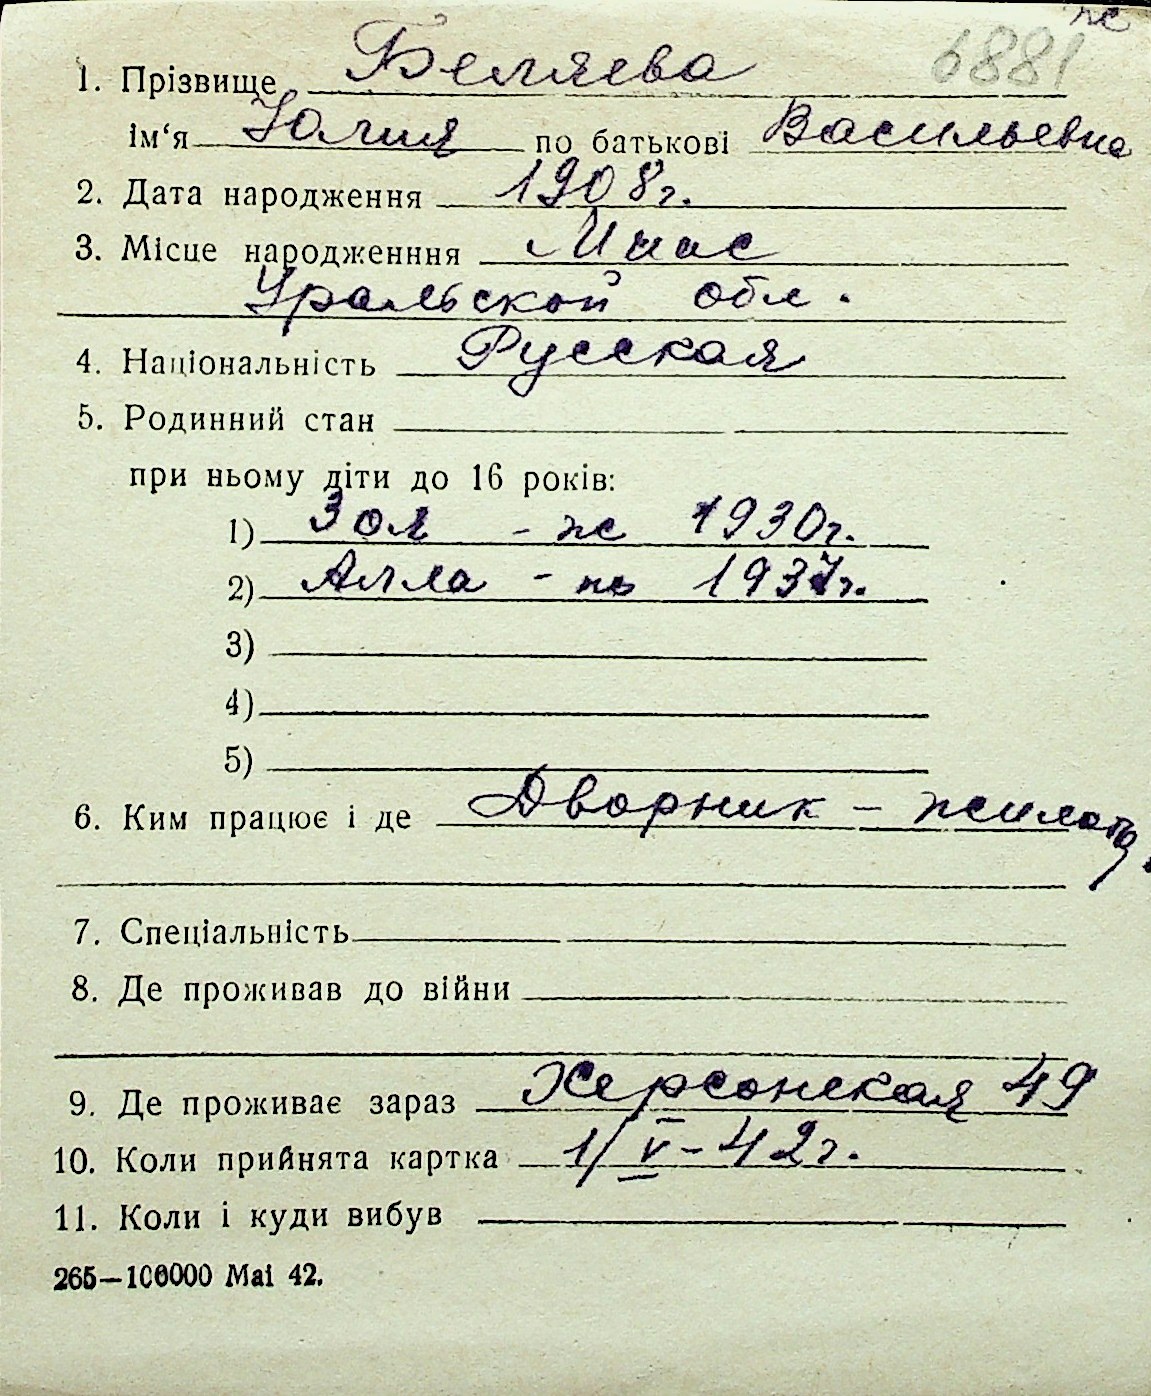 же
6881
1. Прізвище Беляева
ім‘я Юлия по батькові Васильевна
2. Дата народження 1908г.
3. Місце народженння Миас
Уральской обл.
4. Національність Русская
5. Родинний стан
при ньому діти до 16 років:
1) Зоя - же 1930г.
2) Алла - 1937г.
3)
4)
5)
6. Ким працює і де Дворник –
7. Спеціальність
8. Де проживав до війни
9. Де проживає зараз Херсонская 49
10. Коли прийнята картка 1/V-42г.
11. Коли і куди вибув
265—100000 Mai 42.